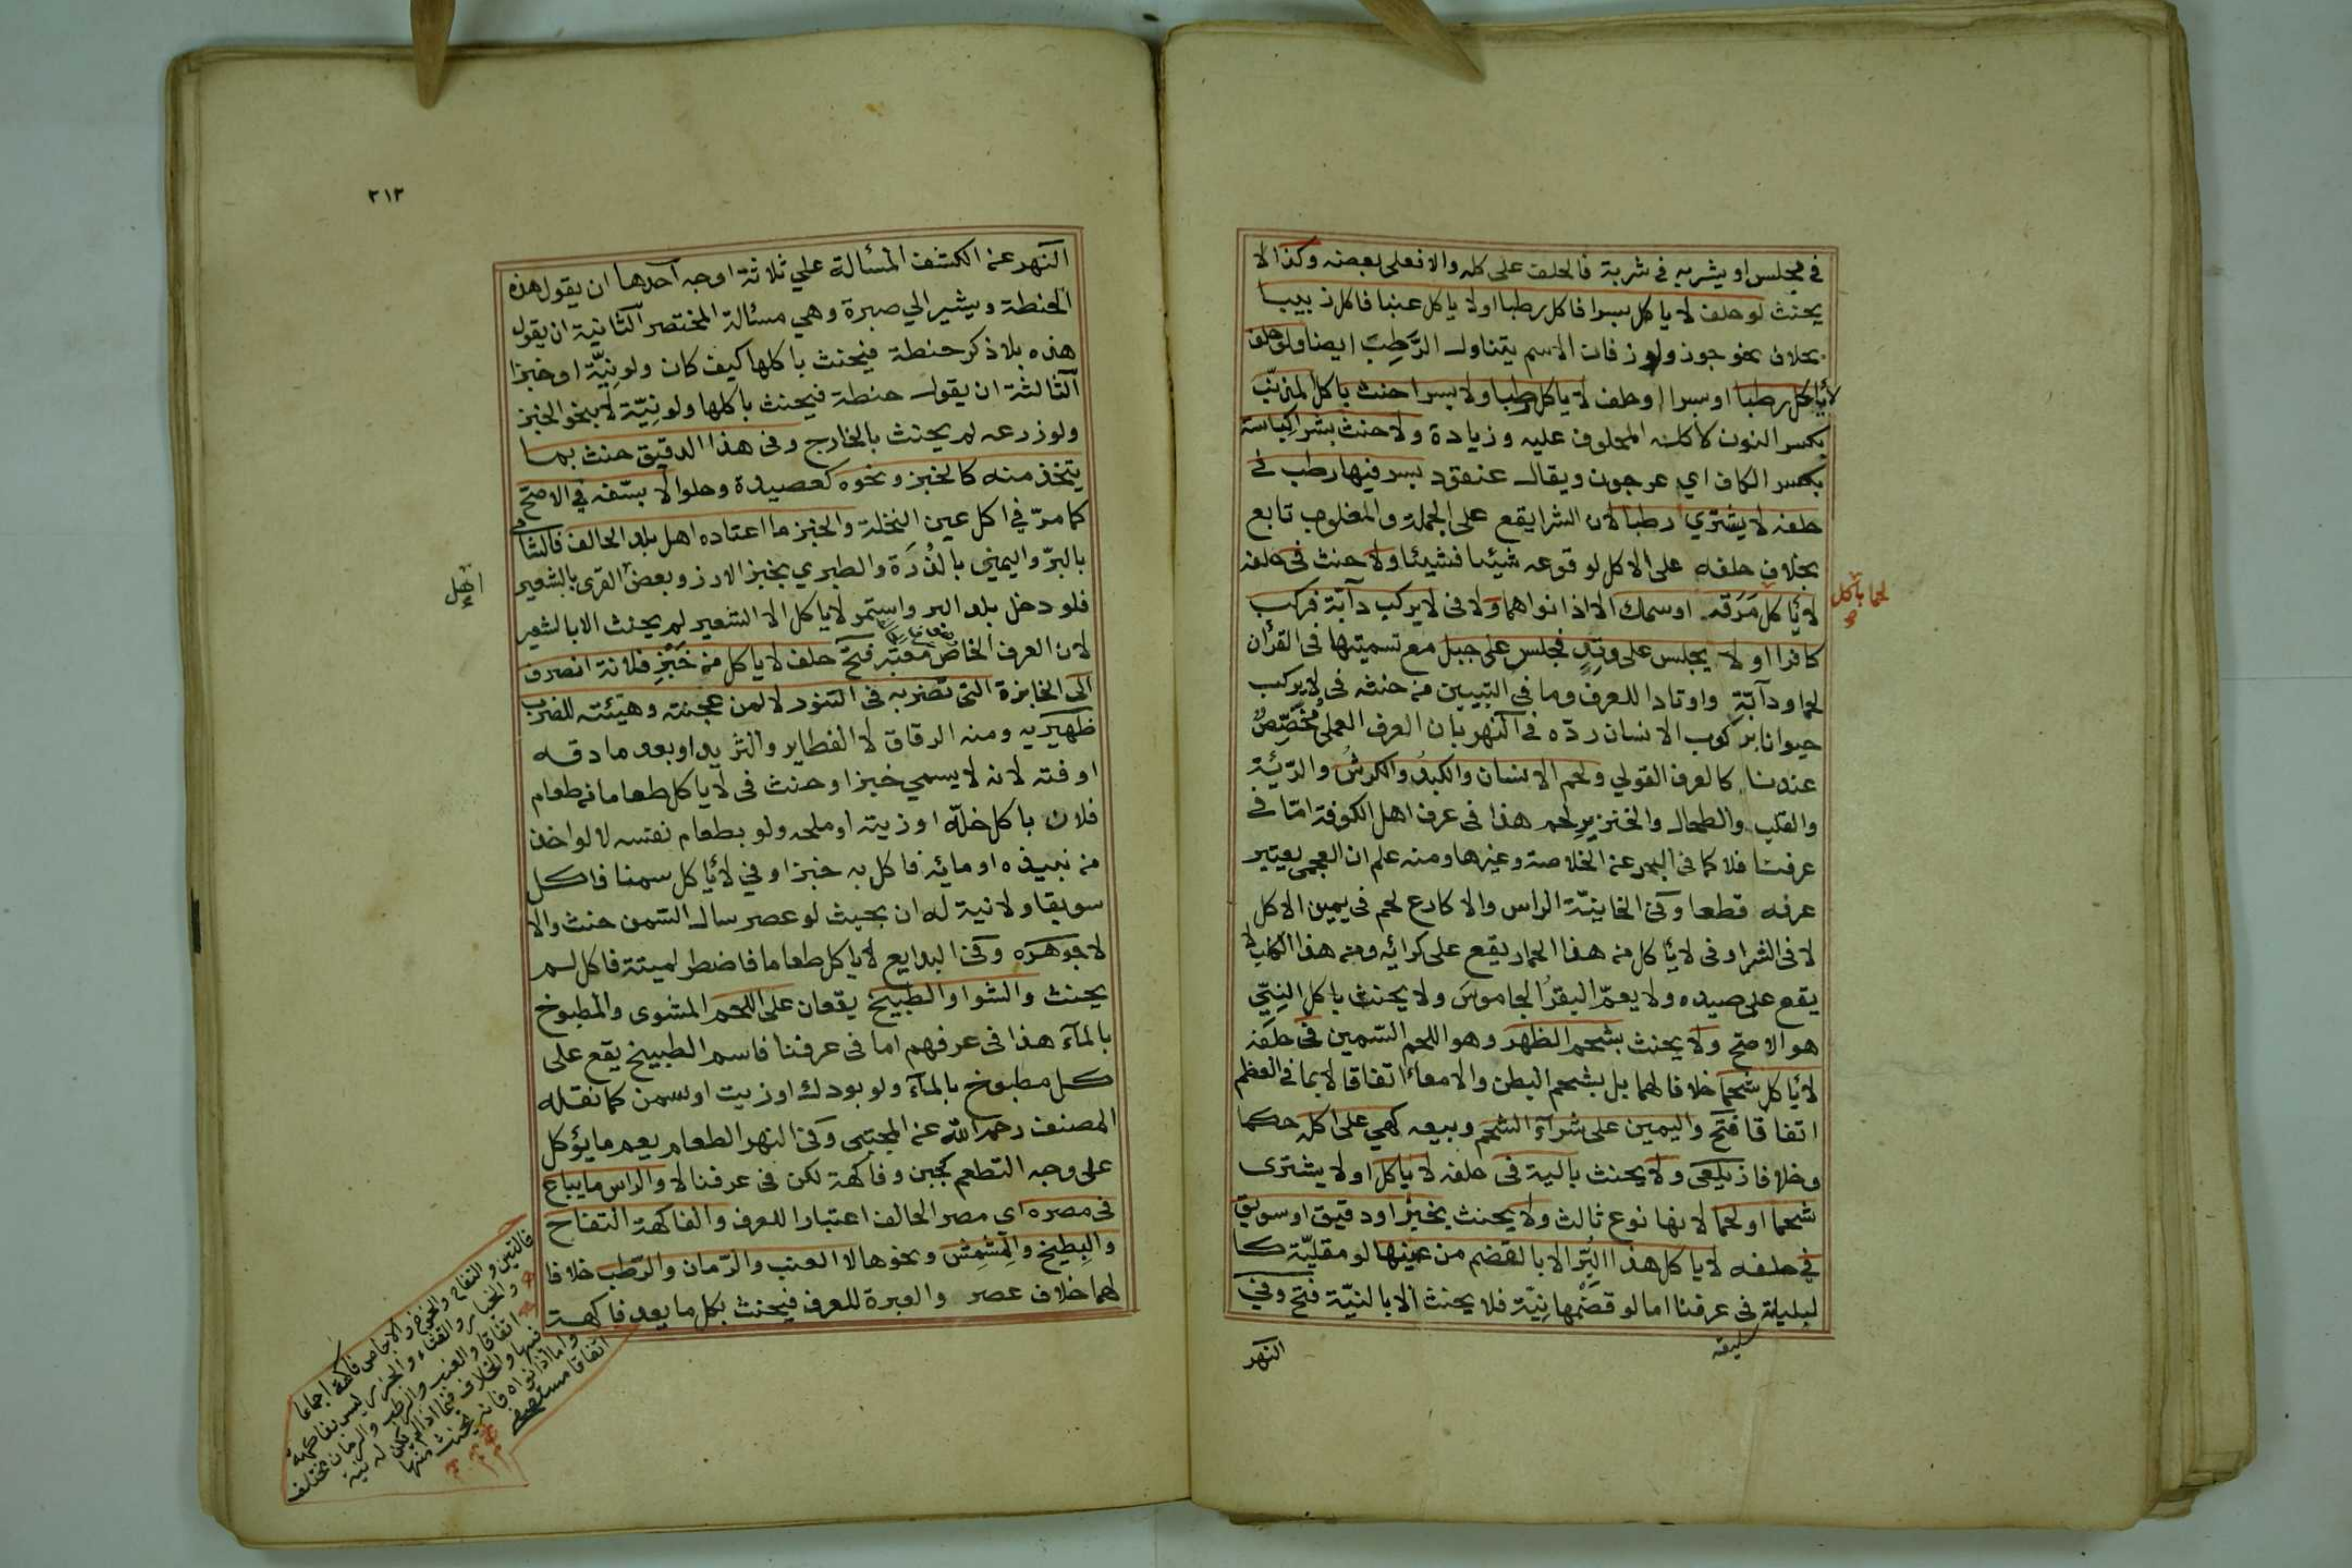 في مجلس او يشربه في شربة فالحلف على كله والا فعلى بعضه وكذا لا
يحنث لو حلف لا ياكل بسرا فاكل رطبا او لا ياكل عنبا فاكل زبيبا
بخلاف نحو جوز ولوز فان الاسم يتناول الرَّطِبَ ايضا ولو حلف
لا ياكل رطبا او بسرا او حلف لا ياكل رطبا ولا بسرا حنث باكل المذنِّب
بكسر النون لاكله المحلوف عليه وزيادة ولا حنث بشرا كِباسة
بكسر الكاف اي عرجون ويقال عنقود بسر فيها رطب في
حلفه لا يشتري رطبا لان الشرا يقع على الجملة والمغلوب تابع
بخلاف حلفه على الاكل لوقوعه شيئا فشيئا ولا حنث في حلفه
لا ياكل لحما باكل
مَرَقه او سمك الا اذا نواهما ولا في لا يركب دآبّة فركب
كافرا او لا يجلس على وتِدٍ فجلس على جبل مع تسميتها في القرآن
لحما ودآبّة واوتادا للعرف وما في التبيين من حنثه في لا يركب
حيوانا بركوب الانسان ردّه في النهر بان العرف العملي مُخَصِّصٌ
عندنا كالعرف القولي ولحم الانسان والكبدُ والكرشُ والرّئية
والقلب والطحال والخنزيرِ لحم هذا في عرف اهل الكوفة امّا في
عرفنا فلا كما في البحر عن الخلاصة وغيرها ومنه علم ان العجمي يعتبر
عرفه قطعا وفي الخانيّة الراس والاكارع لحم في يمين الاكل
لا في الشرا وفي لا ياكل من هذا الحمار يقع على كرائِه ومن هذا الكلب لا
يقع على صيده ولا يعمّ البقرُ الجاموسَ ولا يحنث باكل النِيّ
هو الاصحّ ولا يحنث بشحم الظهر وهو اللحم السّمين في حلفه
لا ياكل شحما خلافا لهما بل بشحم البطن والامعاء اتفاقا لا بما في العظم
اتفاقا فَتَح واليمين على شرآء الشحم وبيعه كهي على اكله حكما
وخلافا زيلعي ولا يحنث بالية في حلفه لا ياكل او لا يشترى
شحما او لحما لانها نوع ثالث ولا يحنث بخبز او دقيق او سويق
في حلفه لا ياكل هذا البُرّ الا بالقضم من عينها لو مقليّة كا
لبليلة في عرفنا اما لو قضَمها نِيّة فلا يحنث الا بالنيّة فتح وفي
النهر
٢١٢
النهر عن الكشف المسألة علي ثلاثة اوجه آحدها ان يقول هذه
الحنطة ويشير الي صبرة وهي مسئالة المختصر الثانية ان يقول
هذه بلا ذكر حنطة فيحنث باكلها كيف كان ولو نِيّة او خبزا
آلثالثة ان يقول حنطة فيحنث باكلها ولو نِيّة لا بنحو الخبز
ولو زرعه لم يحنث بالخارج وفى هذا الدقيق حنث بما
يتخذ منه كالخبز ونحوه كعصيدة وحلوا لا بسّفه في الاصحّ
كما مرّ في اكل عين النخلة والخبز ما اعتاده اهل بلد الحالف فالشامي
بالبرّ واليمني بالذُرَة والطبري بخبز الارز وبعض اهل القرى بالشعير
فلو دخل بلد البر واستمر لا ياكل الا الشعير لم يحنث الا بالشعير
لان العرف الخاصّ معتبر فتح حلف لا ياكل من خَبْزِ فلانة انصرف
الى الخابزة التى تضربه فى التنور لا لمن عجنته وهيئته للضرب
ظهيريه ومنه الرقاق لا الفطاير والثريد او بعد ما دقه
او فته لانه لا يسمي خبزا وحنث فى لا ياكل طعاما من طعام
فلان باكل خلّه او زيته او ملحه ولو بطعام نفسه لا لو اخذ
من نبيذه او مائِه فاكل به خبزا وفي لا ياكل سمنا فاكل
سويقا ولا نية له ان بحيث لو عصر سال السّمن حنث والا
لا جوهرَه وفى البدايع لا ياكل طعاما فاضطر لميتة فاكل لم
يحنث والشوا والطبيخ يقعان على اللحم المشوى والمطبوخ
بالمآء هذا فى عرفهم اما فى عرفنا فاسم الطبيخ يقع على
كل مطبوخ بالمآء ولو بودك او زيت او سمن كما نقله
المصنف رحمه اللّٰه عن المجتبى وفى النهر الطعام يعم ما يؤكل
على وجه التطعم كجبن وفاكهة لكن فى عرفنا لا والراس ما يباع
في مصره اى مصر الحالف اعتبارا للعرف والفاكهة التفاح
والبِطيخ والمشْمِش ونحوها لا العنب والرّمان والرّطب خلافا
لهما خلاف عصر والعبرة للعرف فيحنث بكل ما يعد فاكهة
فالتين والتفاح والخوخ والاجاص فاكهة اجماعا
والخيار والقثاء والجزر ليس بفاكهة
اتفاقا والعنب والرطب والرمان مختلف
فيها والخلاف فيما اذا لم يكن له نية
واما اذا نواه فانه يحنث منها
اتفاقا مستصفى